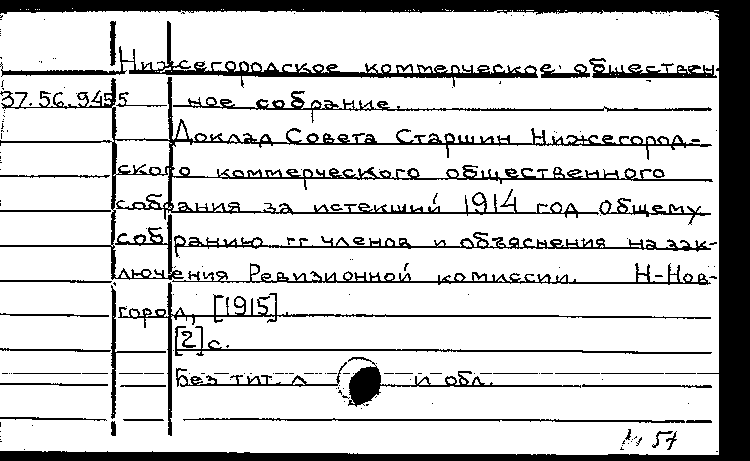 Нижегородское коммерческое обществен-
37.56.9455 ное собрание.
Доклад Совета Старшин Нижегород-
ского коммерческого общественного
собрания за истекший 1914 год Общему
собранию гг членов и объяснения на зак-
лючения Ревизионной комиссии. Н-Нов-
город, [1915].
[2] с.
Без тит. л и обл.
57